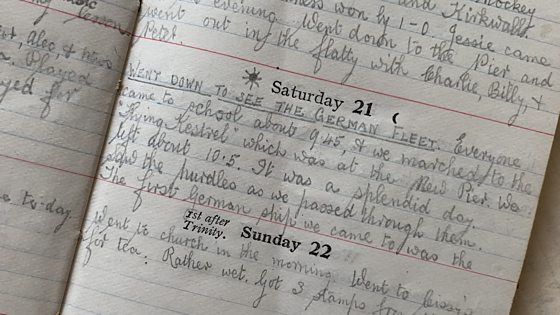 music
lesson.
Alec, &
Played
yed for
e to-day
hockey
won by 1-0. Jessie came
evening. Went down to the Pier and Kirkwall
went out in the flatty with Charlie, Billy &
Peter.
Saturday 21
WENT DOWN TO SEE THE GERMAN FLEET. Everyone
came to school about 9.45, & we marched to the
"Flying Kestrel" which was at the New Pier. We
left about 10.5. It was a splendid day.
the hurdles as we passed through them.
The first German ship we came to was the
1st after
Trinity.
Sunday 22
Went to church in the morning. Went to
for tea. Rather wet. Got 3 stamps